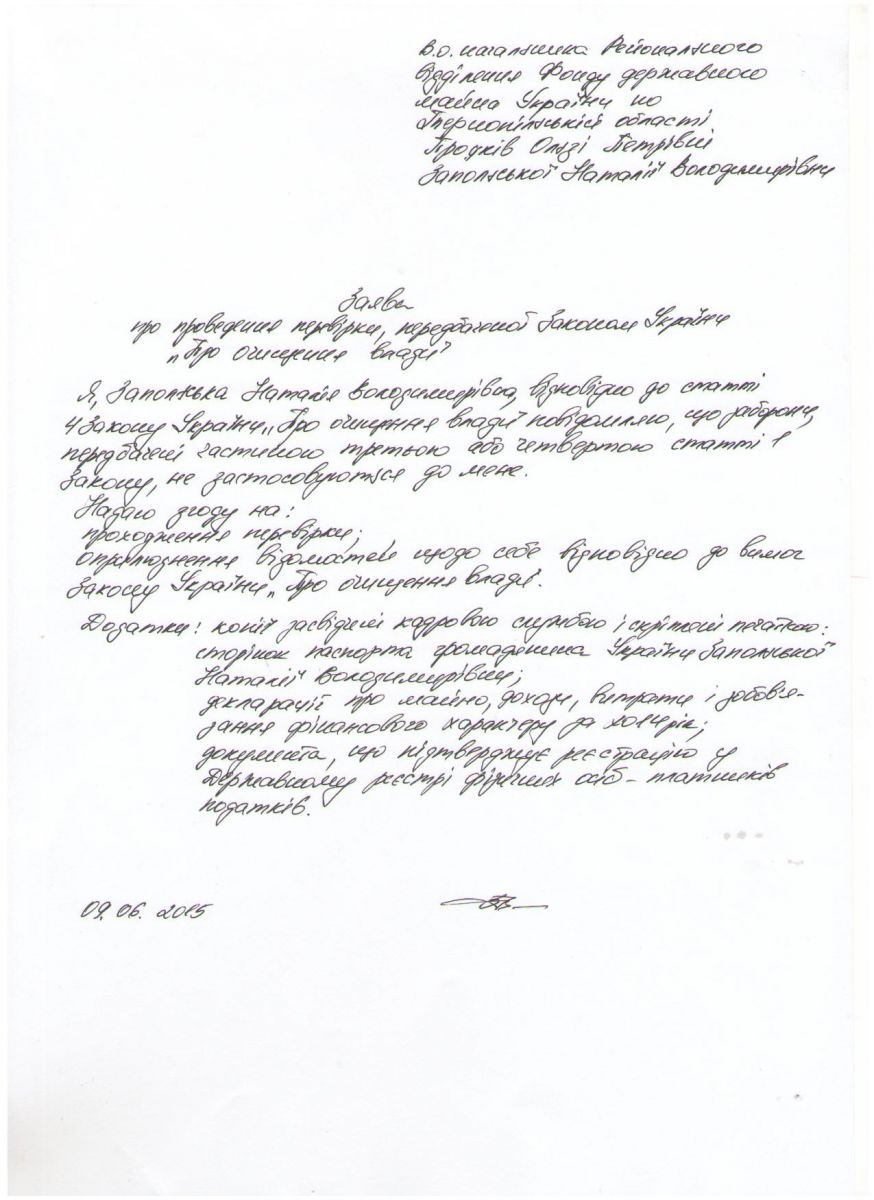 В.о. начальника Регіонального
відділення Фонду державного
майна України по
Тернопільській області
Продків Ользі Петрівні
Запольської Наталії Володимирівни
Заява
про проведення перевірки, передбаченої Законом України
„Про очищення влади"
Я, Запольська Наталія Володимирівна, відповідно до статті
4 Закону України „Про очищення влади" повідомляю, що заборони,
передбачені частиною третьою або четвертою статті 1
Закону, не застосовуються до мене.
Надаю згоду на:
проходження перевірки;
оприлюднення відомостей щодо себе відповідно до вимог
Закону України „Про очищення влади".
Додатки: копії засвідчені кадровою службою і скріплені печаткою:
сторінок паспорта громадянина України Запольської
Наталії Володимирівни;
декларації про майно, доходи, витрати і зобов'я-
зання фінансового характеру за 2014 рік;
документа, що підтверджує реєстрацію у
Державному реєстрі фізичних осіб - платників
податків.
09.06.2015